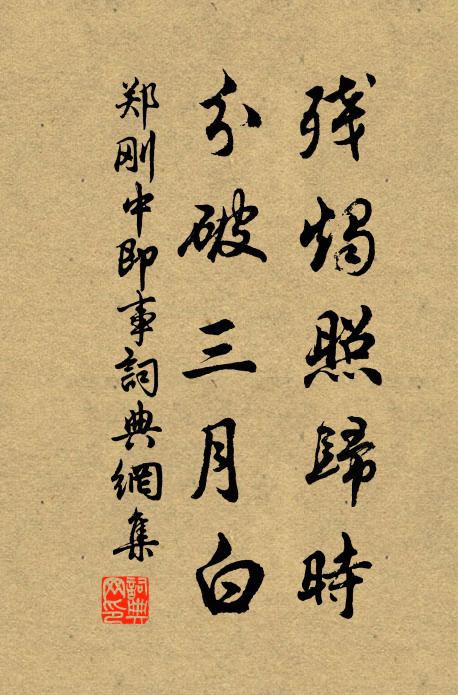 残燭照歸時
分破三月白
郑刚中即事詞典網集
詞典
网印